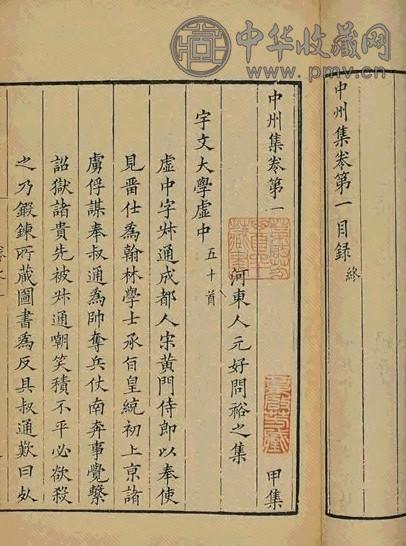 中华收藏网
www.pmv.cn
中州集卷第一目録 終
中州集卷第一
河東人元好問裕之集 甲集
宇文大學虛中 五十首
虛中字叔通成都人宋黃門侍郎以奉使
見畱仕爲翰林學士承旨皇統初上京諸
虜俘謀奉叔通爲帥奪兵仗南奔事覺繫
詔獄諸貴先被叔通嘲笑積不平必欲殺
之乃鍛鍊所藏圖書爲反具叔通歎曰死